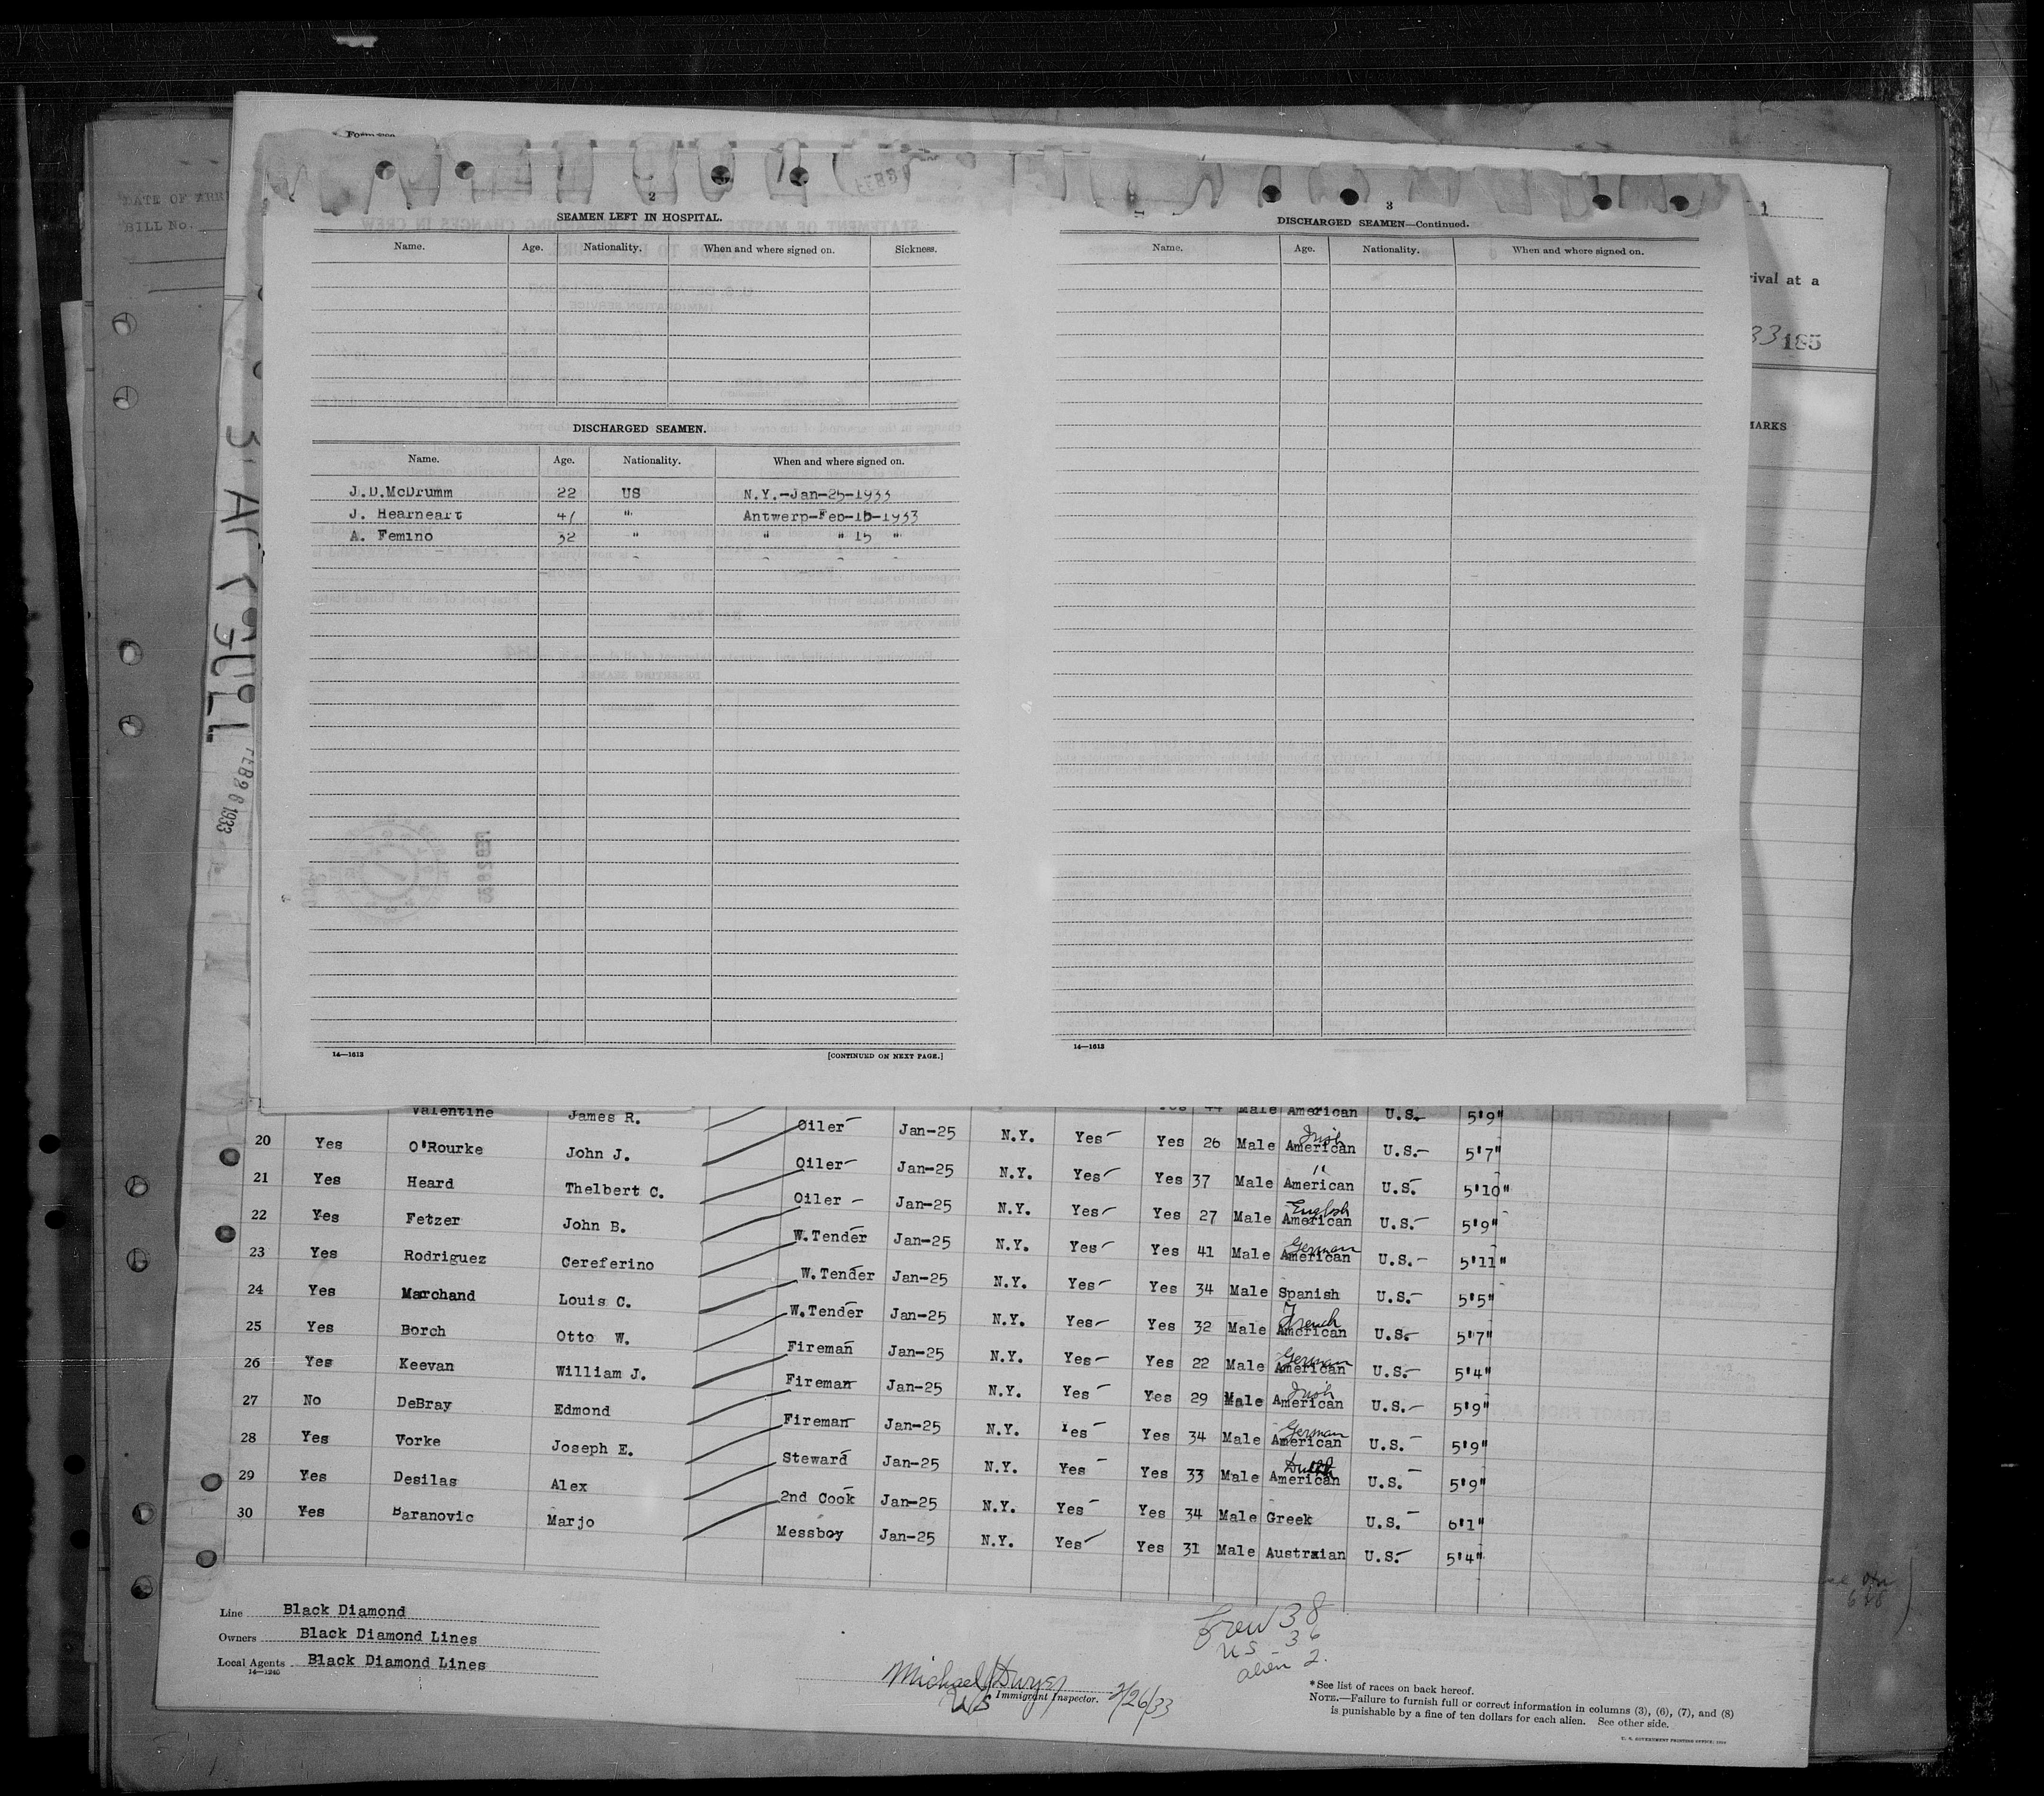 Form
DATE OF ARR
BILL No.
2
SEAMEN LEFT IN HOSPITAL.
Name. Age. Nationality. When and where signed on. Sickness.
DISCHARGED SEAMEN.
Name. Age. Nationality. When and where signed on.
J.D.McDrumm 22 US N.Y.-Jan-25-1933
J. Hearneart 41 " Antwerp-Feb-15-1933
A. Femino 32 " " " 15 "
14—1613 [CONTINUED ON NEXT PAGE.]
3
DISCHARGED SEAMEN—Continued.
Name. Age. Nationality. When and where signed on.
14—1613
1
rival at a
33 185
MARKS
FEB 26 1933
Valentine James R. Yes 44 Male American U.S.- 5'9"
20 Yes O'Rourke John J. Oiler- Jan-25 N.Y. Yes- Yes 26 Male Irish American U.S.- 5'7"
21 Yes Heard Thelbert C. Oiler- Jan-25 N.Y. Yes- Yes 37 Male " American U.S.- 5'10"
22 Yes Fetzer John B. Oiler - Jan-25 N.Y. Yes- Yes 27 Male English American U.S.- 5'9"
23 Yes Rodriguez Cereferino W.Tender Jan-25 N.Y. Yes- Yes 41 Male German American U.S.- 5'11"
24 Yes Marchand Louis C. W.Tender Jan-25 N.Y. Yes- Yes 34 Male Spanish U.S.- 5'5"
25 Yes Borch Otto W. W.Tender Jan-25 N.Y. Yes- Yes 32 Male French American U.S.- 5'7"
26 Yes Keevan William J. Fireman Jan-25 N.Y. Yes- Yes 22 Male German American U.S.- 5'4"
27 No DeBray Edmond Fireman Jan-25 N.Y. Yes- Yes 29 Male Irish American U.S.- 5'9"
28 Yes Vorke Joseph E. Fireman Jan-25 N.Y. Yes- Yes 34 Male German American U.S.- 5'9"
29 Yes Desilas Alex Steward Jan-25 N.Y. Yes- Yes 33 Male Dutch American U.S.- 5'9"
30 Yes Baranovic Marjo 2nd Cook Jan-25 N.Y. Yes- Yes 34 Male Greek U.S.- 6'1"
Messboy Jan-25 N.Y. Yes- Yes 31 Male Austrxian U.S.- 5'4"
Line Black Diamond
Owners Black Diamond Lines
Local Agents Black Diamond Lines
14—1240
Crew 38
US - 36
alien 2.
Michael J Dwyer
Immigrant Inspector. 2/26/33
*See list of races on back hereof.
NOTE.—Failure to furnish full or correct information in columns (3), (6), (7), and (8)
is punishable by a fine of ten dollars for each alien. See other side.
U. S. GOVERNMENT PRINTING OFFICE